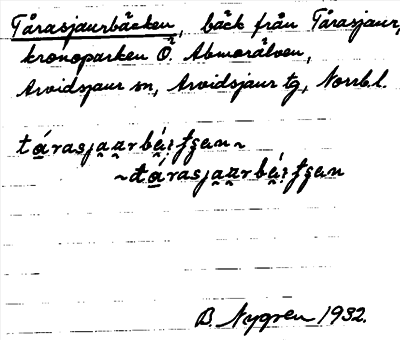 Tårasjaurbäcken, bäck från Tårasjaur,
kronoparken Ö. Abmorälven,
Arvidsjaur sn, Arvidsjaur tg, Norrb.l.
B. Nygren 1932.